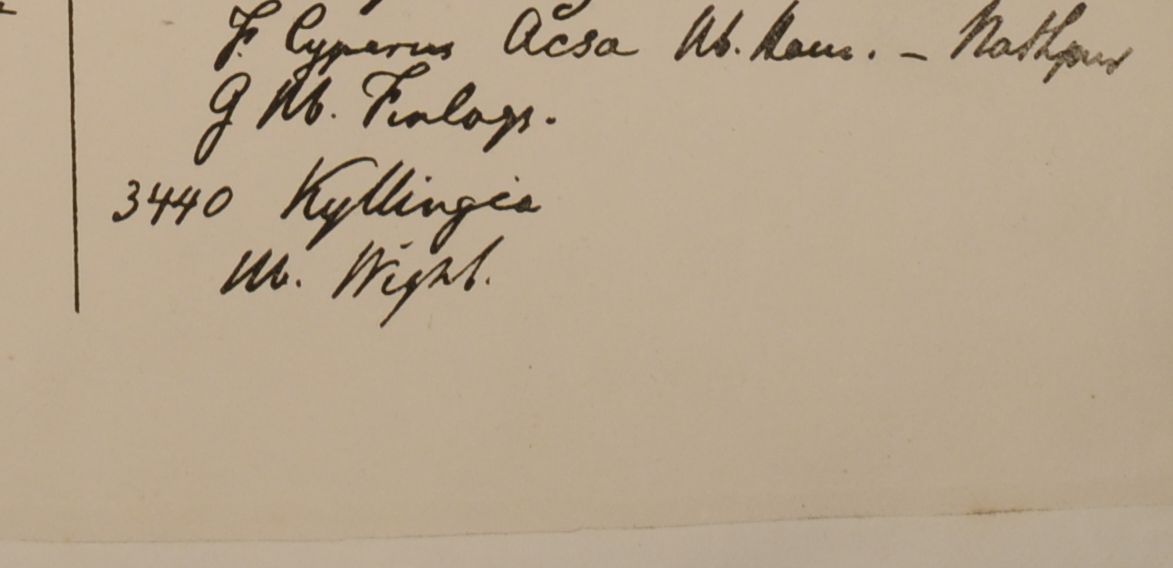 F. Cyperus Acsa Hb. Ham. – Nathpur
G Hb. Finlays.
3440 Kyllingia
Hb. Wight.